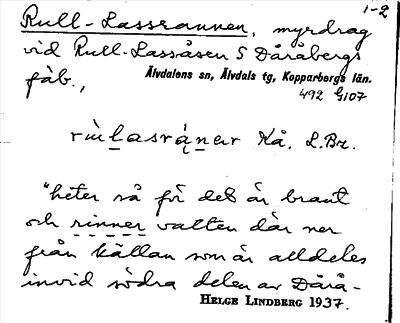 1-2
Rull-Lassrannen, myrdrag
vid Rull-Lassåsen S Dåråbergs
fäb.,
Älvdalens sn, Älvdals tg, Kopparbergs län.
492 G107
Kå. L.Br.
"heter så för det är brant
och rinner vatten där ner
från källan som är alldeles
invid södra delen av Dårå-
HELGE LINDBERG 1937.